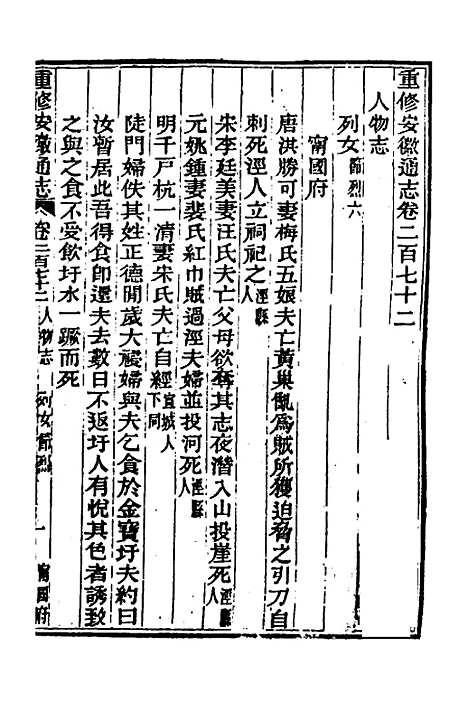 重修安徽通志卷二百七十二
人物志
列女節烈六
甯國府
唐洪勝可妻梅氏五娘夫亡黃巢亂爲賊所獲迫脅之引刀自
刺死涇人立祠祀之涇縣人
宋李廷美妻汪氏夫亡父母欲奪其志夜潛入山投崖死涇縣人
元姚鍾妻裴氏紅巾賊過涇夫婦並投河死涇縣人
明千戸杭一清妻朱氏夫亡自經宣城人下同
陡門婦佚其姓正德閒歲大祲婦與夫乞食於金寶圩夫約曰
汝暫居此吾得食即還夫去數日不返圩人有悅其色者誘致
之與之食不受飲圩水一蹶而死
重修安徽通志 卷二百七十二 人物志 列女節烈 一 甯國府